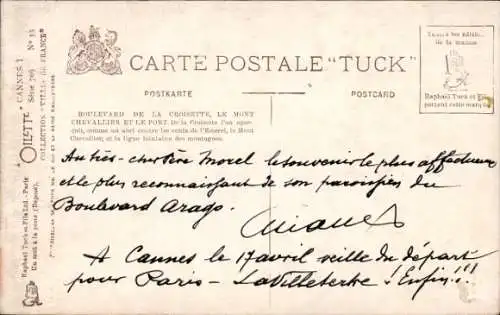 CARTE POSTALE "TUCK"
POSTKARTE
POSTCARD
BOULEVARD DE LA CROISETTE, LE MONT
CHEVALLIER ET LE PORT. De la Croisette l'on aper-
çoit, comme un abri contre les vents de l'Esterel, le Mont
Chevallier, et la ligne lointaine des montagnes.
Raphaël Tuck et
portent cette marque
Raphaël Tuck et Fils Ltd. - Paris
Un mot à la poste (Déposé)
OILETTE "CANNES I"
Série 795 N° 35
COLLECTION "VILLES DE FRANCE"
Au très-cher Père Morel le souvenir le plus affectueux
et le plus reconnaissant de son paroissien du
Boulevard Arago.
A Cannes le 17 avril veille du départ
pour Paris - La Villetertre ! Enfin !!!